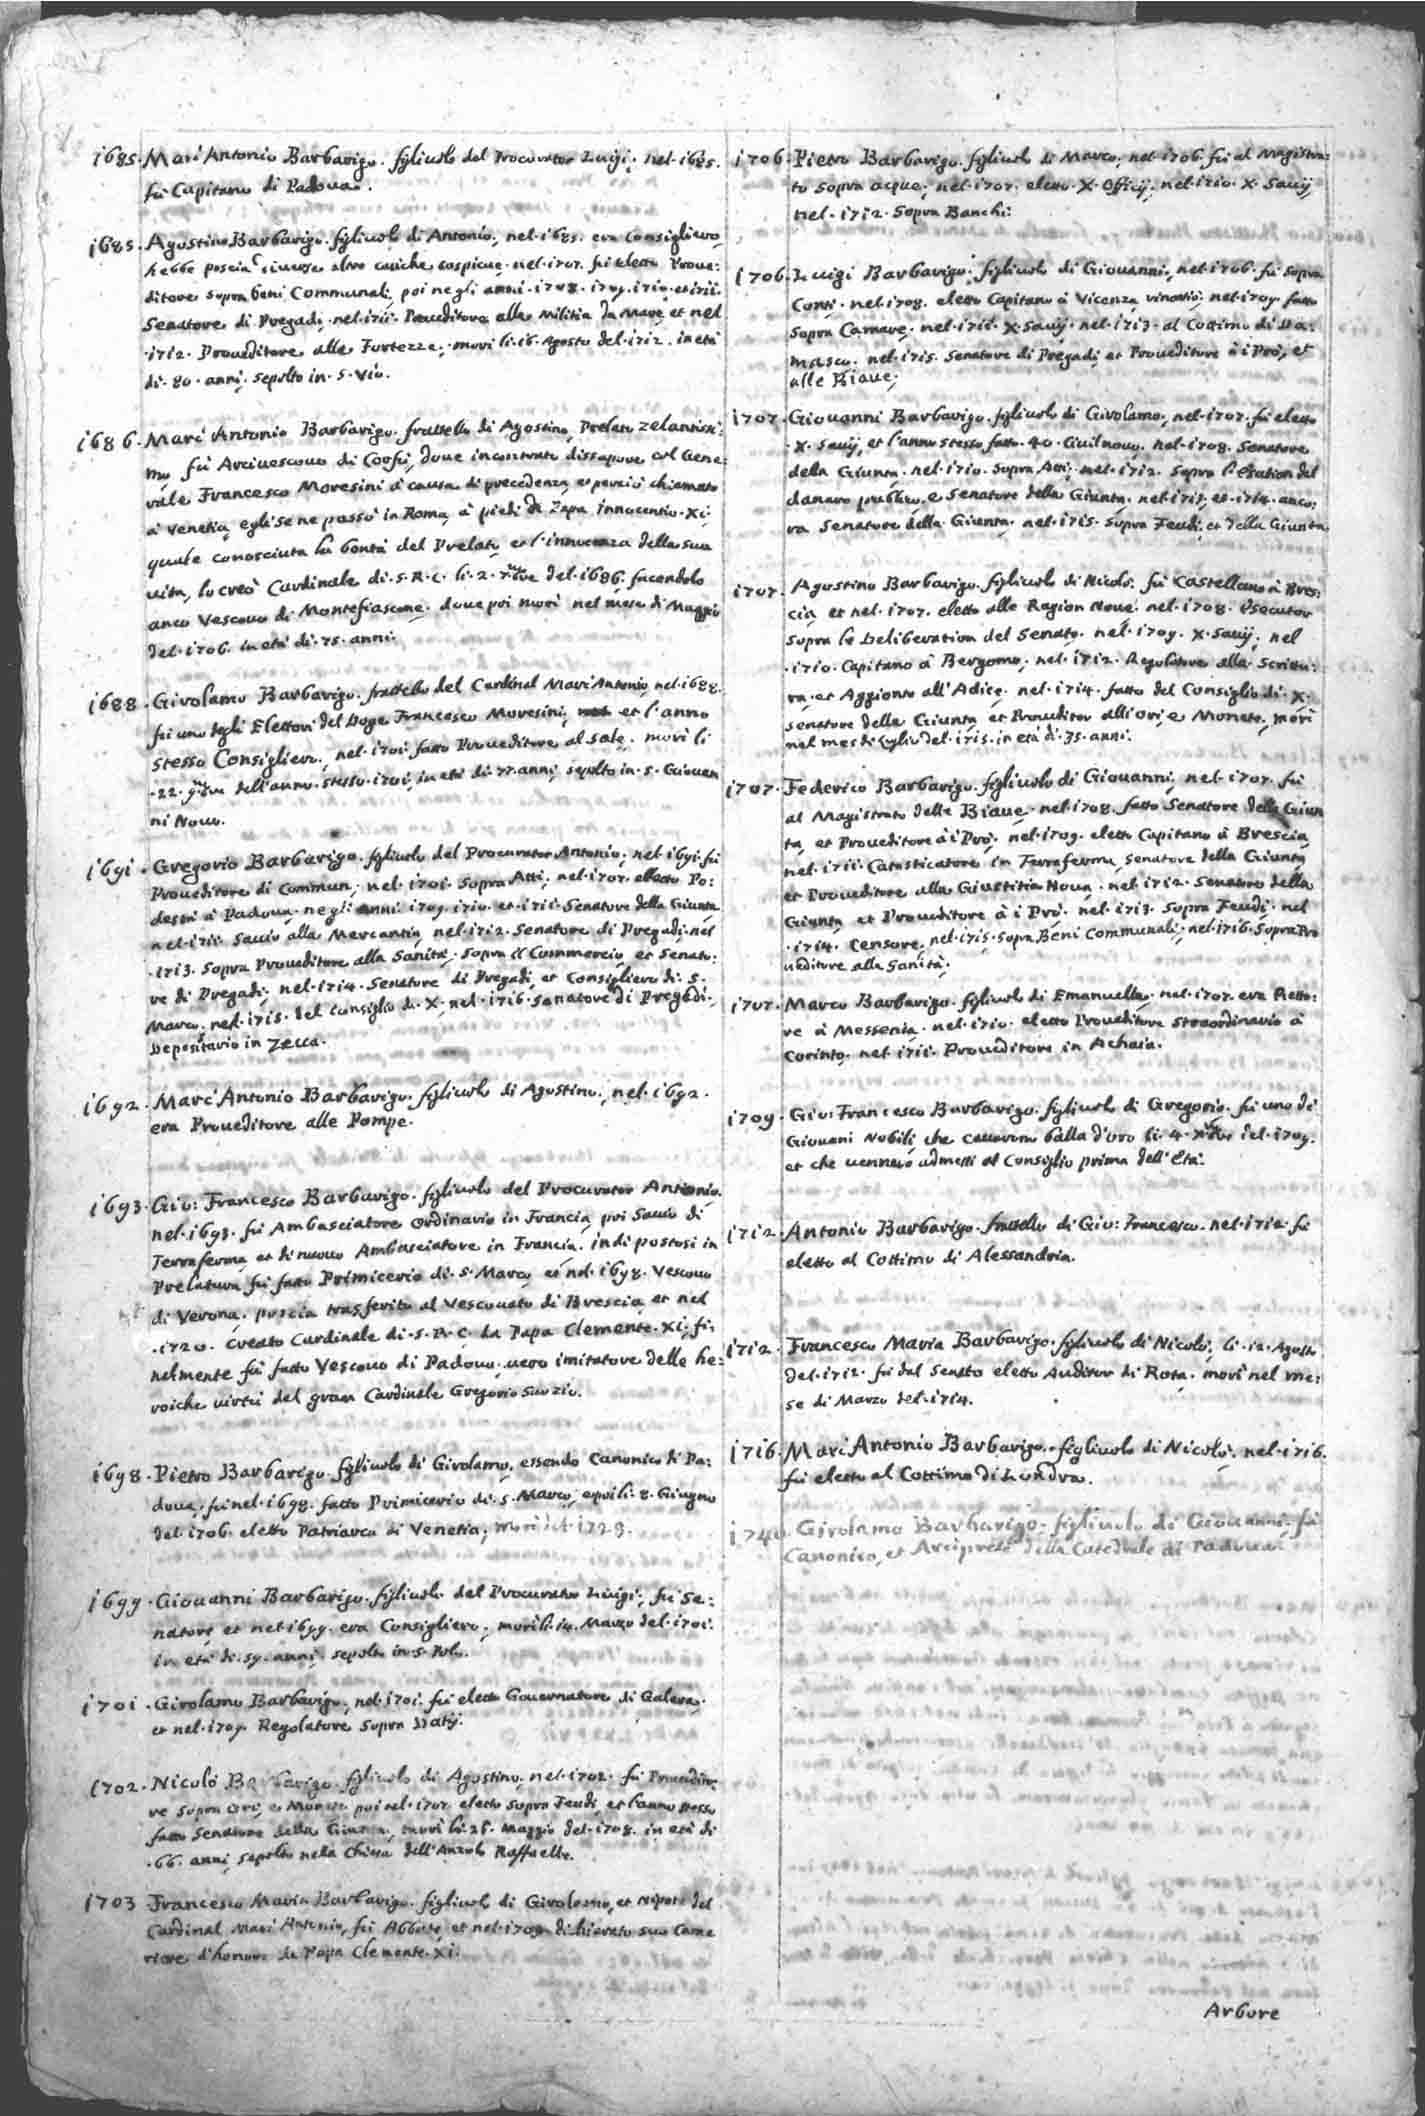 1685. Marc'Antonio Barbarigo. figliuolo del Procurator Luigi; nel. 1685.
fu Capitano di Padoua.
1685. Agostino Barbarigo figliuolo di Antonio, nel. 1685. era Consigliero,
hebbe poscia altre cariche cospicue. nel. 1707. fu eletto Proue:
ditore sopra beni Communali, poi negli anni. 1708. 1709. 1710. et 1711.
Senatore di Pregadi. nel. 1711. Proueditore alla Militia da Mare, et nel
.1712. Proueditore alle Fortezze; morì li. 16. Agosto del. 1712. in età
di. 80. anni, sepolto in. S. Vio.
1686. Marc'Antonio Barbarigo. frattello di Agostino, Prelato zelantissi:
mo, fu Arciuescouo di Corfù, doue incontrate dissapore col Gene:
rale Francesco Moresini à causa di precedenza, e perciò chiamato
à Venetia, egli se ne passò in Roma, à piedi di Papa Innocentio. XI,
quale conosciuta la bontà del Prelato, et l'innocenza della sua
uita, lo creò Cardinale di. S. R. C. li. 2. 7mbre del. 1686. facendolo
anco Vescouo di Montefiascone. doue poi morì nel mese di Maggio
del. 1706. in età di. 75. anni.
1688. Girolamo Barbarigo. frattello del Cardinal Marc'Antonio, nel. 1688.
fu uno degli Elettori del Doge Francesco Moresini, et l'anno
stesso Consigliero, nel. 1701. fatto Proueditore al Sale. morì li
.22. 9mbre dell'anno stesso. 1701, in età di. 77. anni, sepolto in. S. Giouan
ni Nouo.
1691. Gregorio Barbarigo. figliuolo del Procurator Antonio; nel. 1691. fu
Proueditore di Commun; nel. 1701. sopra Atti; nel. 1707. eletto Po:
destà à Padoua, negli anni. 1709. 1710. et. 1711. Senatore della Giunta
nel. 1711. Sauio alla Mercantia, nel. 1712. Senatore di Pregadi, nel
.1713. sopra Proueditore alla Sanità, sopra il Commercio, et Senato:
re di Pregadi; nel. 1714. Senatore di Pregadi, et Consigliero di. S.
Marco. nel. 1715. del Consiglio di. X. nel. 1716. Senatore di Pregadi,
Depositario in Zecca.
1692. Marc'Antonio Barbarigo. figliuolo di Agostino, nel. 1692.
era Proueditore alle Pompe.
1693. Gio: Francesco Barbarigo. figliuolo del Procurator Antonio,
nel. 1693. fu Ambasciatore ordinario in Francia, poi Sauio di
Terraferma, et di nuouo Ambasciatore in Francia. indi postosi in
Prelatura fu fatto Primicerio di. S. Marco, et nel. 1698. Vescouo
di Verona. poscia trasferito al Vescouato di Brescia et nel
.1720. creato Cardinale di. S. R. C. da Papa Clemente. XI, fi:
nalmente fu fatto Vescouo di Padoua, uero imitatore delle he:
roiche uirtù del gran Cardinale Gregorio suo zio.
1698. Pietro Barbarigo figliuolo di Girolamo, essendo Canonico di Pa:
doua, fu nel. 1698. fatto Primicerio di. S. Marco, e poi li. 8. Giugno
del. 1706. eletto Patriarca di Venetia, morì del. 1725.
1699. Giouanni Barbarigo. figliuolo del Procurator Luigi, fu Se:
natore, et nel. 1699. era Consigliero; morì li. 14. Marzo del. 1701.
in età di. 59. anni, sepolto in. S. Polo.
1701. Girolamo Barbarigo, nel. 1701. fu eletto Gouernatore di Galera,
et nel. 1709. Regolatore sopra Datij.
1702. Nicolò Barbarigo figliuolo di Agostino, nel. 1702. fu Proudito
re sopra Ori, e Monete poi nel. 1707. eletto sopra Feudi, et l'anno stesso
fatto Senatore della Giunta, morì li. 28. Maggio del. 1708. in età di
.66. anni, sepolto nella Chiesa dell'Anzolo Raffaelle.
1703 Francesco Maria Barbarigo. figliuolo di Girolamo, et nipote del
Cardinal Marc'Antonio, fu Abbate, et nel. 1703. dichiarato suo Came
riere d'honore da Papa Clemente. XI.
1706. Pietro Barbarigo. figliuolo di Marco, nel. 1706. fu al Magistra:
to sopra acque; nel. 1707. eletto. X. Officij, nel. 1710. X. Sauij
nel. 1712. sopra Banchi.
1706. Luigi Barbarigo, figliuolo di Giouanni, nel. 1706. fu sopra
Conti. nel. 1708. eletto Capitano à Vicenza, nel. 1709. fatto
sopra Camere, nel. 1711. X. Sauij. nel. 1713. al Cottimo di Da:
masco. nel. 1715. Senatore di Pregadi, et Proueditore à i Prò, et
alle Biaue;
1707. Giouanni Barbarigo. figliuolo di Girolamo, nel. 1707. fu eletto
.X. Sauij, et l'anno stesso fatto. 40. Ciuil nouo. nel. 1708. Senatore
della Giunta. nel. 1710. sopra Atti, nel. 1712. sopra l'esation del
danaro publico, e Senatore della Giunta. nel. 1713. et. 1714. anco:
ra Senatore della Giunta. nel. 1715. sopra Feudi, et della Giunta
1707. Agostino Barbarigo. figliuolo di Nicolò. fu Castellano à Bres:
cia, et nel. 1707. eletto alle Ragion Noue. nel. 1708. Esecutor
sopra le Deliberation del Senato. nel. 1709. X. Sauij, nel
.1710. Capitano à Bergamo, nel. 1712. Regolatore alla Scrittu:
ra, et Aggionto all'Adice, nel. 1714. fatto del Consiglio di. X.
Senatore della Giunta, et Proueditor alli ori, e Monete, morì
nel mes di Luglio del. 1715. in età di. 35. anni.
1707. Federico Barbarigo. figliuolo di Giouanni, nel. 1707. fu
al Magistrato delle Biaue. nel. 1708. fatto Senatore della Giun
ta, et Proueditore à i Prò. nel. 1709. eletto Capitano à Brescia,
nel. 1711. Catasticatore in Terraferma, Senatore della Giunta
et Proueditore alla Giustitia Noua. nel. 1712. Senatore della
Giunta, et Proueditore à i Prò. nel. 1713. sopra Feudi. nel
.1714. Censore, nel. 1715. sopra Beni Communali; nel. 1716. sopra Pro
ueditore alla Sanità.
1707. Marco Barbarigo. figliuolo di Emanuelle, nel. 1707. era Retto:
re à Messenia. nel. 1710. eletto Proueditore straordinario à
Corinto. nel. 1711. Proueditore in Achaia.
1709. Gio: Francesco Barbarigo. figliuolo di Gregorio. fu uno di
Giouani Nobili che cauarono balla d'oro li. 4. Xmbre del. 1709.
et che uennero admessi al Consiglio prima dell'Età.
1712. Antonio Barbarigo. frattello di Gio: Francesco. nel. 1712. fu
eletto al Cottimo di Alessandria.
1712. Francesco Maria Barbarigo. figliuolo di Nicolò; li. 12. Agosto
del. 1712. fu dal Senato eletto Auditor di Rota. morì nel me:
se di Marzo del. 1714.
1716. Marc'Antonio Barbarigo. figliuolo di Nicolò. nel. 1716.
fu eletto al Cottimo di Londra.
1740 Girolamo Barbarigo. figliuolo di Giouanni. fù
Canonico, et Arciprete della Catedrale di Padoua.
Arbore